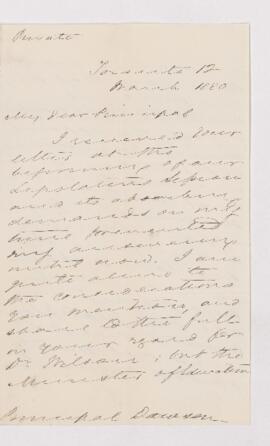 Private
Toronto 12
March 1880
My dear Principal
I received your
letter at the
beginning of our
Legislative Session
and its absorbing
demands on me
have prevented
my answering
until now. I am
quite alive to
the considerations
you mention, and
share to the full
in your regard for
Dr Wilson; but the
Minister of Education
Principal Dawson